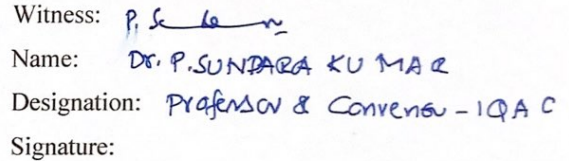 Witness:
Name: Dr. P. SUNDARA KUMAR
Designation: Professor & Convenor - IQAC
Signature: